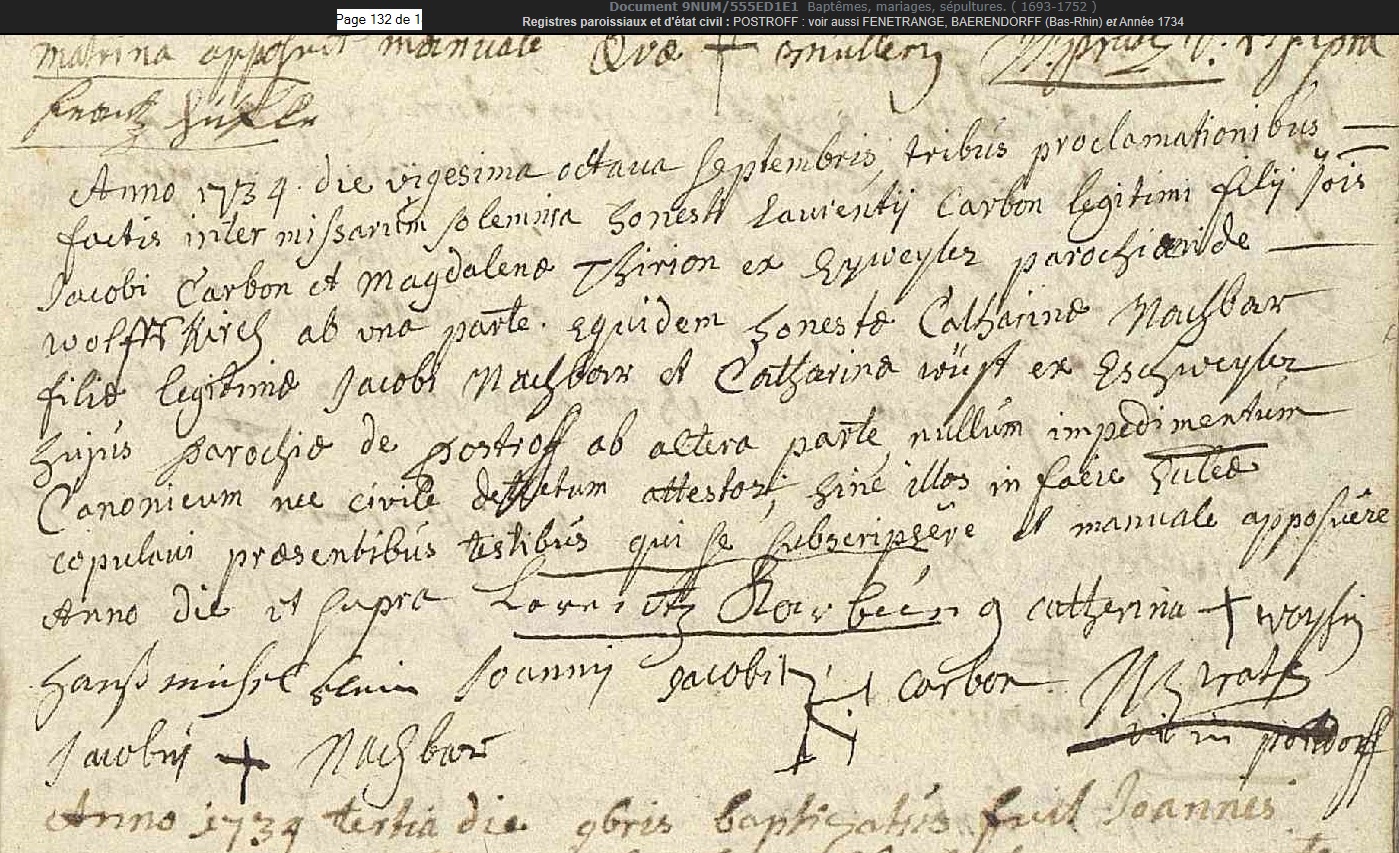 Document 9NUM/555ED1E1 Baptêmes, mariages, sépultures. ( 1693-1752 )
Page 132 de 1
Registres paroissiaux et d'état civil : POSTROFF : voir aussi FENETRANGE, BAERENDORFF (Bas-Rhin) et Année 1734
matrina apposuit manuale Evæ + mullerin
Anno 1734 die vigesima octava septembris, tribus proclamationibus
factis inter missarum solemnia honesti Laurentij Carbon legitimi filij Jois
Jacobi Carbon et Magdalenæ Thirion ex Eyweyler parochiæ de
wolffskirch ab una parte. equidem honestæ Catharinæ Nachbar
filiæ legitimæ Jacobi Nachbar et Catharinæ wüst ex Eschweyler
hujus parochiæ de postroff ab altera parte nullum impedimentum
Canonicum nec civile detectum attestor, hinc illos in facie Eulæ
copulavi præsentibus testibus qui se subscripsere et manuale apposuere
Anno die ut supra Lorentz Karbung catherina +
hanß michel Joannij Jacobi carbon
Jacobij + Nachbar
Anno 1734 tertia die 9bris baptizatus fuit Joannes